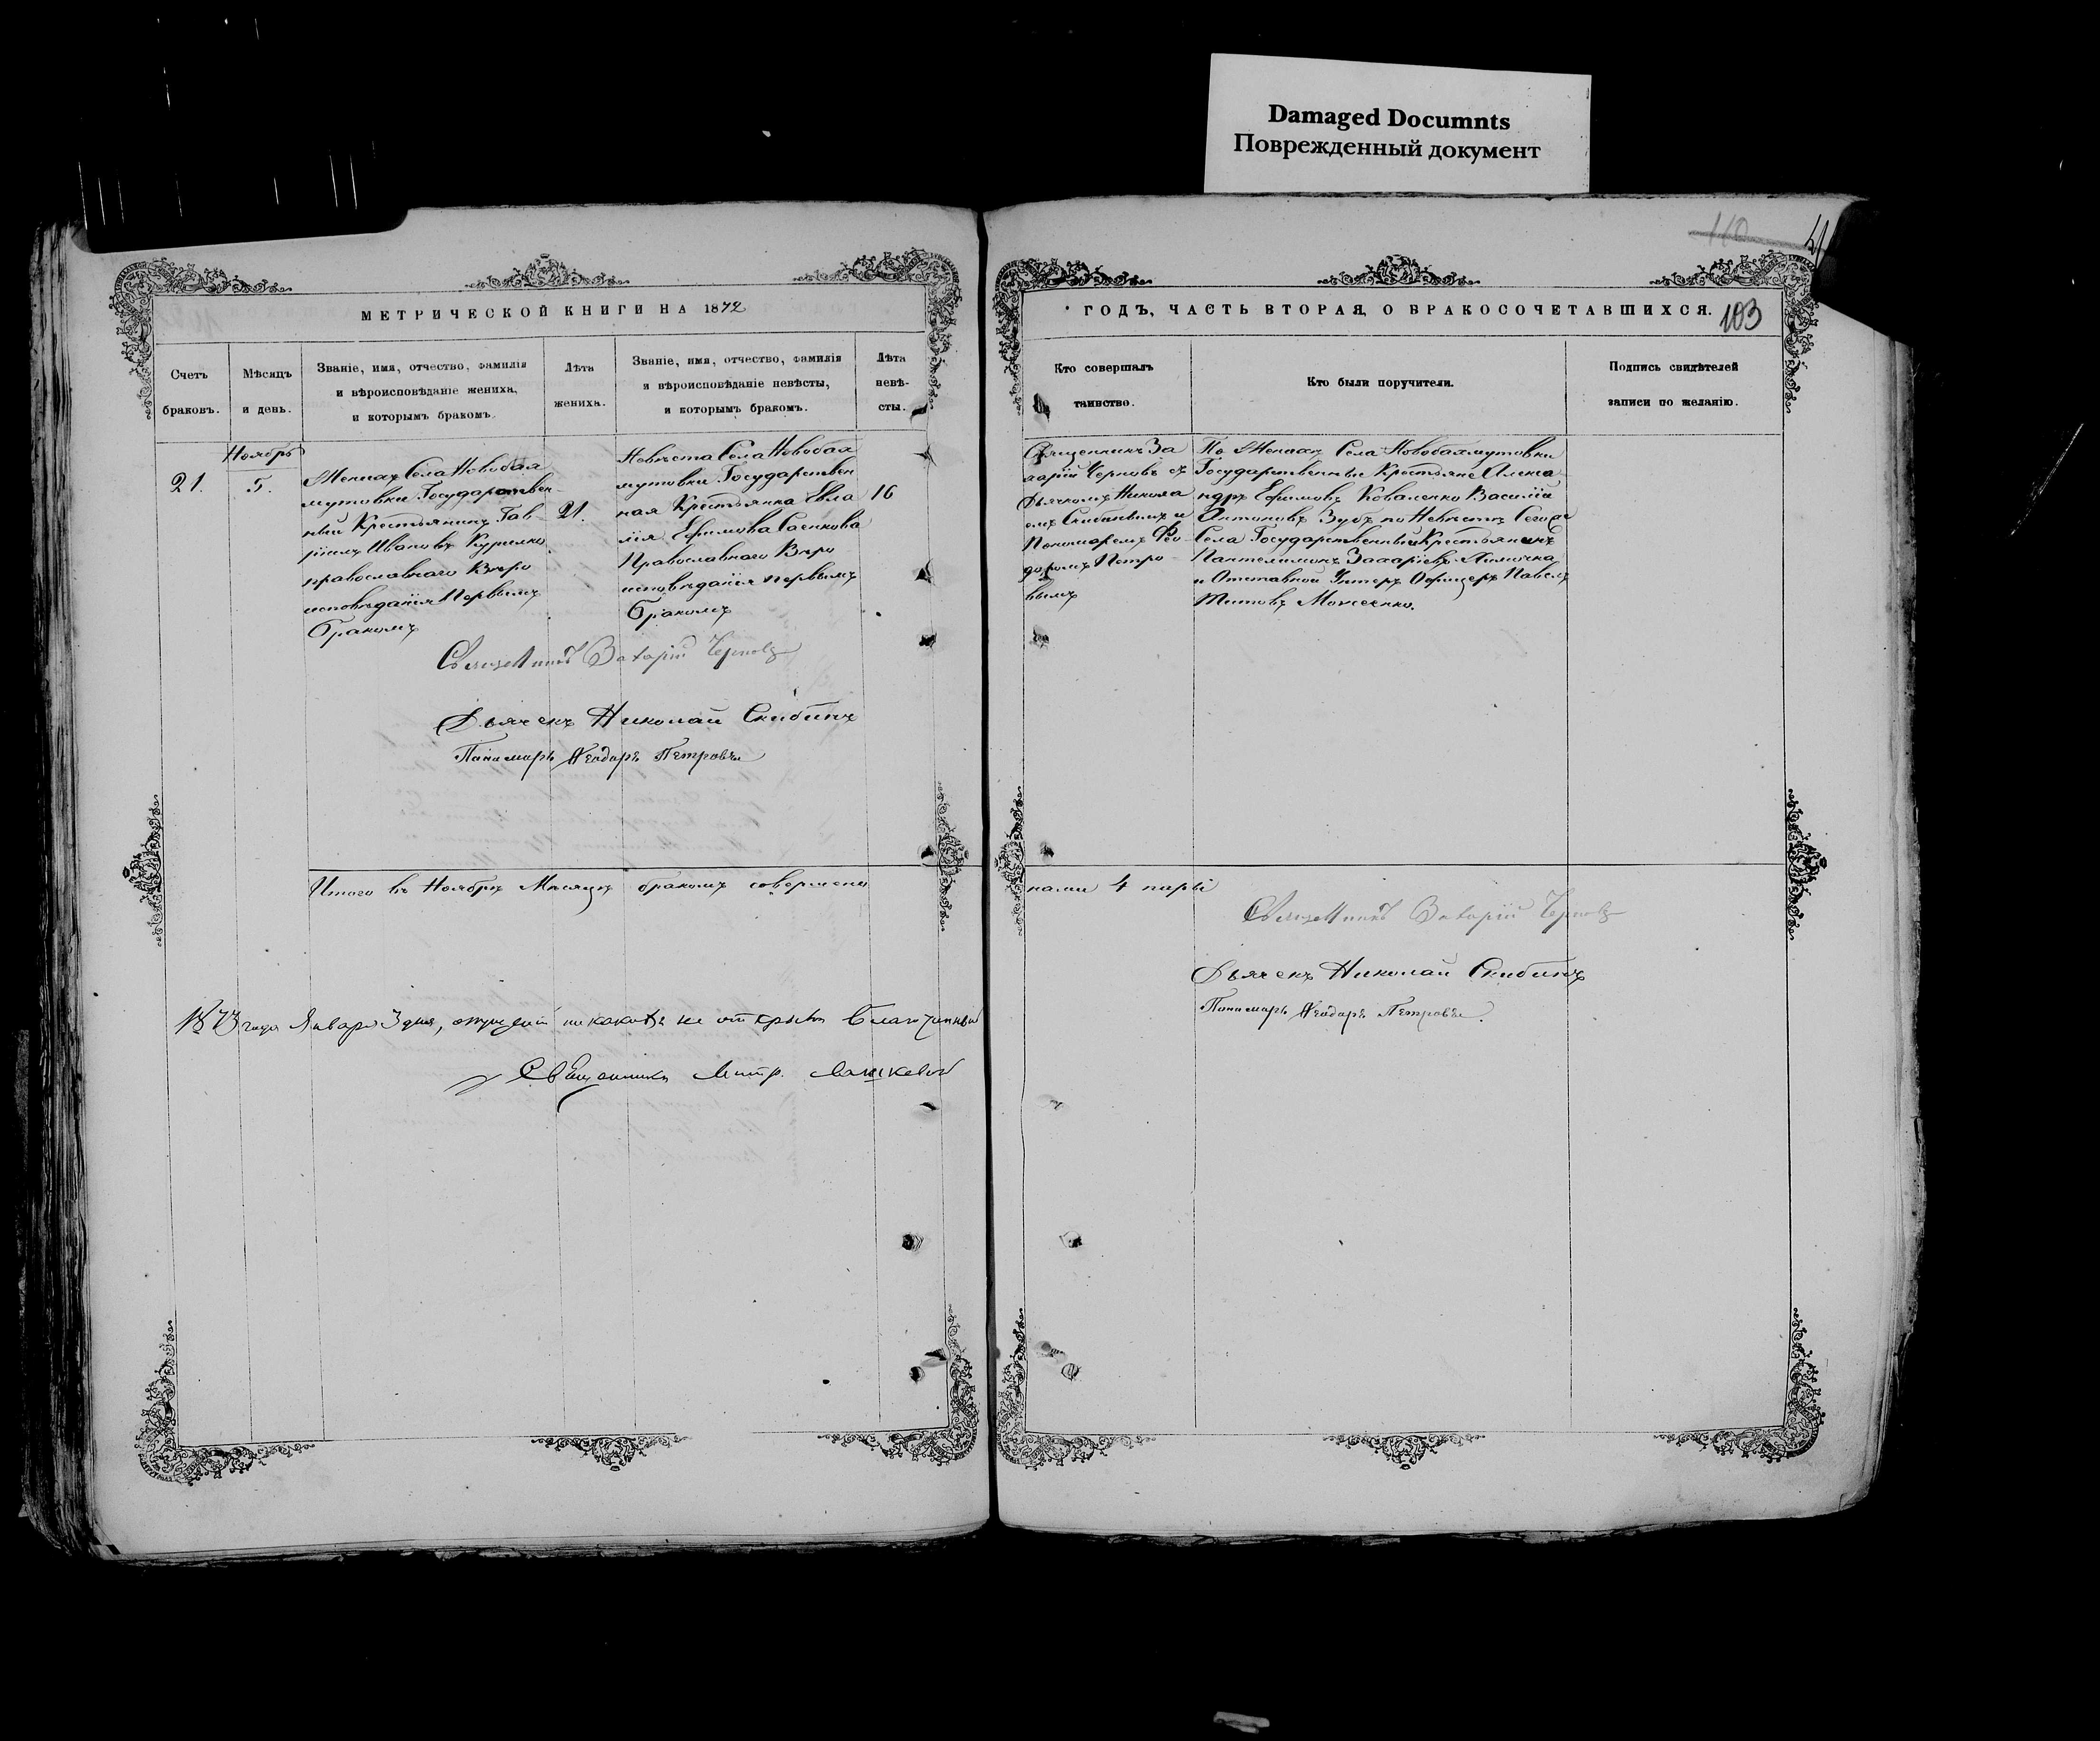 Damaged Documnts
Поврежденный документ
110
103
МЕТРИЧЕСКОЙ КНИГИ НА 1872
ГОДЪ, ЧАСТЬ ВТОРАЯ, О БРАКОСОЧЕТАВШИХСЯ.
Счетъ
браковъ.
Мѣсяцъ
и день.
Званіе, имя, отчество, фамилія
и вѣроисповѣданіе жениха,
и которымъ бракомъ.
Лѣта
жениха.
Званіе, имя, отчество, фамилія
и вѣроисповѣданіе невѣсты,
и которымъ бракомъ.
Лѣта
невѣ-
сты.
Кто совершалъ
таинство.
Кто были поручители.
Подпись свидѣтелей
записи по желанію.
21.
Ноябрь
5.
Женихъ Села Новобах
мутовки Государствен-
ный Крестьянинъ Гав-
ріилъ Ивановъ Курилко
православнаго Вѣро
исповѣданія Первымъ
бракомъ
21.
Невѣста Села Новобах
мутовки Государствен
ная Крестьянка Евла
лія Ефимова Саенкова
Православнаго Вѣро
исповѣданія первымъ
бракомъ
16
Священникъ За
харій Черновъ съ
Дьячкомъ Никола
емъ Скибинымъ и
Пономаремъ Фео
доромъ Петро-
вымъ
По Женихѣ Села Новобахмутовки
Государственные Крестьяне Алекса
ндръ Ефимовъ Коваленко Василій
Антоновъ Зубъ по Невѣстѣ Сего же
Села Государственный Крестьянинъ
Пантелимонъ Захаріевъ
и Отставной Унтеръ Офицеръ Павелъ
Титовъ
Священникъ Захарій Черновъ
Дьячекъ Николай Скибинъ
Панамарь Феодаръ Петровъ
Итого въ Ноябрѣ Месяцѣ бракомъ совершено
нами 4 пары
Священникъ Захарій Черновъ
Дьячекъ Николай Скибинъ
Панамарь Феодаръ Петровъ.
1873 года Января 3 дня, опущеній никакихъ не открыто Благочинный
Священникъ Митр.